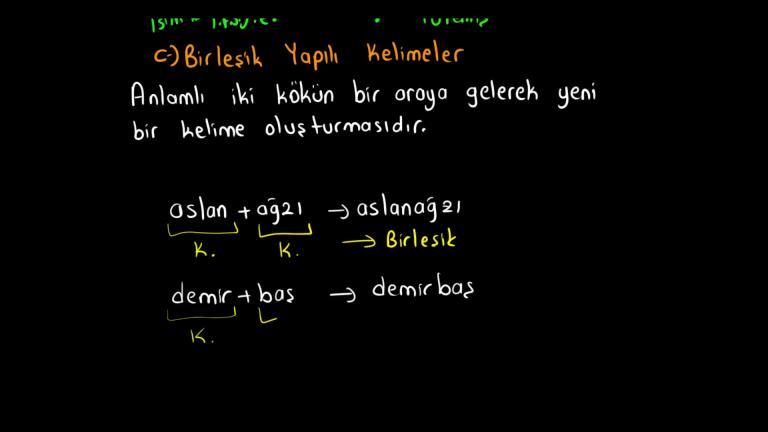 c-) Birleşik Yapılı Kelimeler
Anlamlı iki kökün bir araya gelerek yeni
bir kelime oluşturmasıdır.
aslan + ağzı → aslanağzı
K. K. → Birleşik
demir + baş → demirbaş
K.